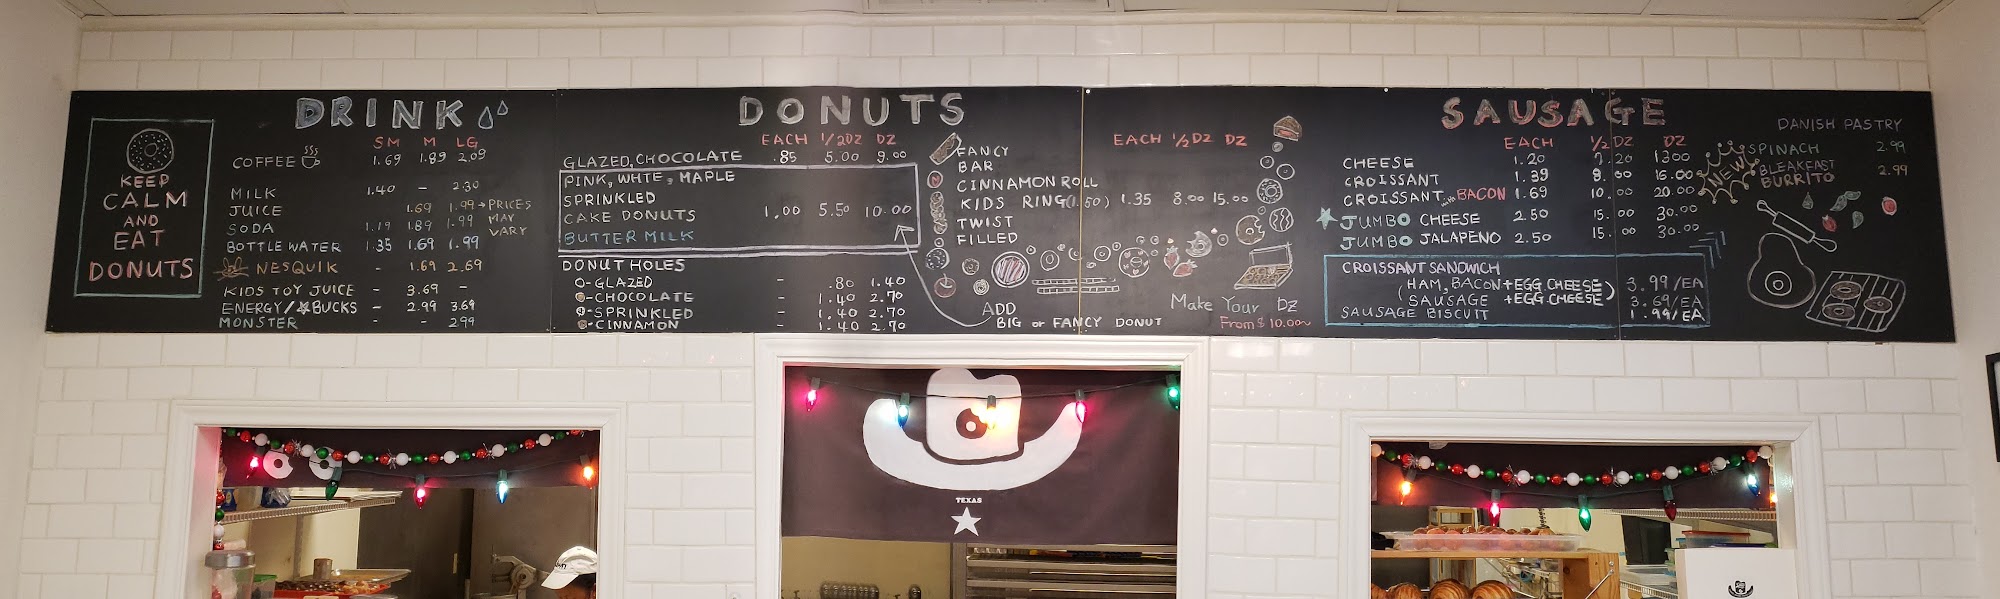 KEEP
CALM
AND
EAT
DONUTS
DRINK
SM M LG
COFFEE 1.69 1.89 2.09
MILK 1.40 - 2.30
JUICE 1.69 1.99 → PRICES
MAY
VARY
SODA 1.19 1.89 1.99
BOTTLE WATER 1.35 1.69 1.99
NESQUIK - 1.69 2.69
KIDS TOY JUICE - 3.69 -
ENERGY/☆BUCKS - 2.99 3.69
MONSTER - - 2.99
DONUTS
EACH 1/2DZ DZ
GLAZED, CHOCOLATE .85 5.00 9.00
PINK, WHTE, MAPLE
SPRINKLED
CAKE DONUTS 1.00 5.50 10.00
BUTTER MILK
DONUT HOLES
O-GLAZED - .80 1.40
-CHOCOLATE - 1.40 2.70
-SPRINKLED - 1.40 2.70
-CINNAMON - 1.40 2.70
EACH 1/2DZ DZ
FANCY
BAR
CINNAMON ROLL
KIDS RING(1.50) 1.35 8.00 15.00
TWIST
FILLED
ADD
BIG or FANCY DONUT
Make Your DZ
From $ 10.00~
SAUSAGE
EACH 1/2 DZ DZ
CHEESE 1.20 7.20 13.00
CROISSANT 1.39 8.00 15.00
CROISSANT with BACON 1.69 10.00 20.00
JUMBO CHEESE 2.50 15.00 30.00
JUMBO JALAPENO 2.50 15.00 30.00
CROISSANT SANDWICH
(HAM, BACON + EGG CHEESE) 3.99/EA
(SAUSAGE + EGG CHEESE) 3.69/EA
SAUSAGE BISCUIT 1.99/EA
DANISH PASTRY
NEW
SPINACH 2.99
BLEAKFAST
BURRITO 2.99
TEXAS